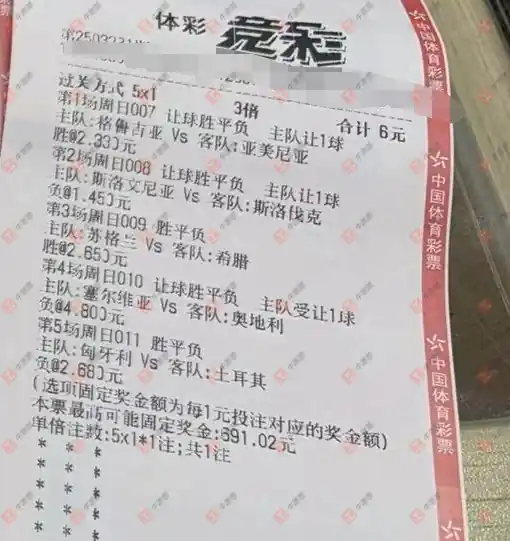 体彩 竞彩
过关方式 5x1 3倍 合计 6元
第1场周日007 让球胜平负 主队让1球
主队:格鲁吉亚 Vs 客队:亚美尼亚
胜@2.330元
第2场周日008 让球胜平负 主队让1球
主队:斯洛文尼亚 Vs 客队:斯洛伐克
负@1.450元
第3场周日009 胜平负
主队:苏格兰 Vs 客队:希腊
胜@2.650元
第4场周日010 让球胜平负 主队受让1球
主队:塞尔维亚 Vs 客队:奥地利
负@4.800元
第5场周日011 胜平负
主队:匈牙利 Vs 客队:土耳其
负@2.680元
(选项固定奖金额为每1元投注对应的奖金额)
本票最高可能固定奖金:691.02元
单倍注数:5x1*1注;共1注
* * *
* * *
* * *
* * *
* * *
中国体育彩票
中国体育彩票
中国体育彩票